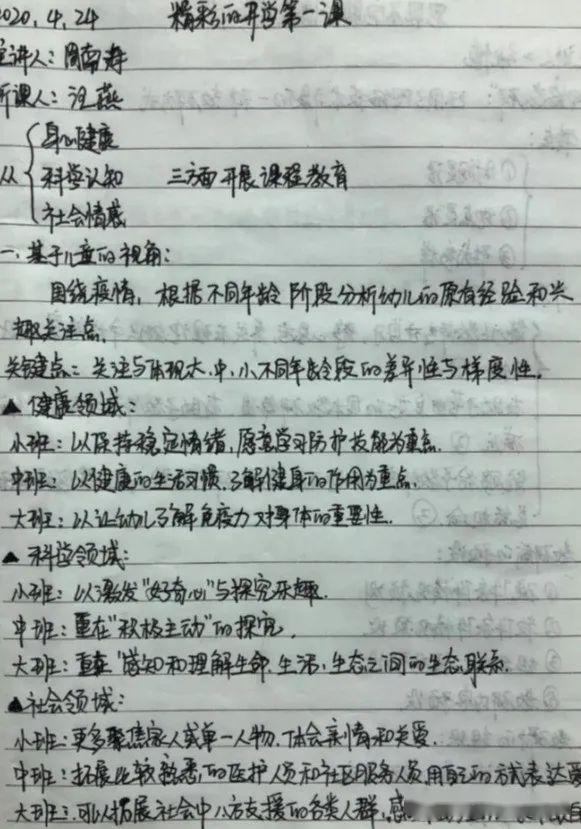 2020.4.24 精彩的开学第一课
主讲人：周南寿
听课人：汪燕
身心健康
从 科学认知 三方面开展课程教育
社会情感
一、基于儿童的视角：
围绕疫情，根据不同年龄阶段分析幼儿的原有经验和兴
趣关注点。
关键点：关注与体现大、中、小不同年龄段的差异性与梯度性。
▲健康领域：
小班：以保持稳定情绪，愿意学习防护技能为重点。
中班：以健康的生活习惯，了解健身的作用为重点。
大班：以让幼儿了解免疫力对身体的重要性。
▲科学领域：
小班：以激发“好奇心”与探究乐趣。
中班：重在“积极主动”的探究。
大班：重在“感知和理解生命、生活、生态之间的生态联系。
▲社会领域：
小班：更多聚焦家人或单一人物，体会亲情和关爱。
中班：拓展比较熟悉的医护人员和社区服务人员，用自己的方式表达爱
大班：可以拓展社会中八方支援的各类人群，感